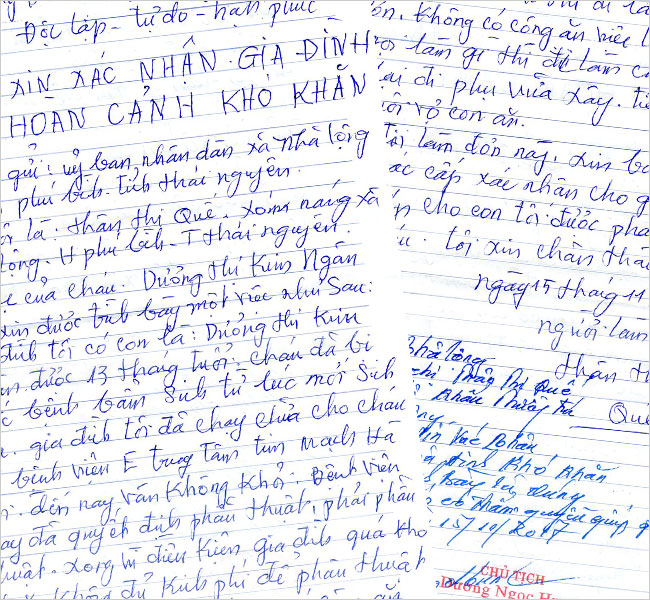 Độc lập - tự do - hạnh phúc
XIN XÁC NHẬN GIA ĐÌNH
HOÀN CẢNH KHÓ KHĂN
gửi: uỷ ban nhân dân xã nhà lộng
phú bình. tỉnh thái nguyên.
là: thân thị Quê. xóm náng xã
lộng. H phú bình - T thái nguyên.
mẹ của cháu. Dương thị Kim Ngân
xin được trình bày một việc như Sau:
đình tôi có con là: Dương thị Kim
được 13 tháng tuổi. cháu đã bị
bệnh bẩm Sinh từ lúc mới Sinh
gia đình tôi đã chạy chữa cho cháu
bệnh viện E trung Tâm tim mạch Hà
đến nay vẫn không khỏi. Bệnh viện
nay đã quyết định phẫu thuật, phải phẫu
thuật. xong vì điều kiện gia đình quá khó
không đủ kinh phí để phẫu thuật
ổn. Không có công ăn việc l
làm gì thì đi làm
đi phụ vữa xây.
con ăn.
tôi làm đơn này. xin
các cấp xác nhận cho g
cho con tôi được phẫ
tôi xin chân thà
ngày 15 tháng 11
người làm
thân th
Quê
nhà lộng
chị thân thị Quê
khẩu
xác nhận
đình khó khăn
nội dung
có thẩm quyền giúp
15/10/2017
CHỦ TỊCH
Dương Ngọc H